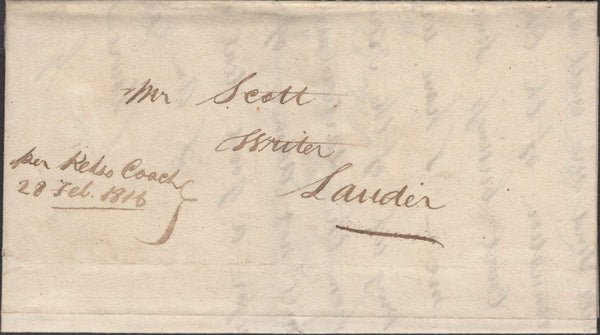 Mr Scott
Writer
Lauder
per Kelso Coach
28 Feb. 1816